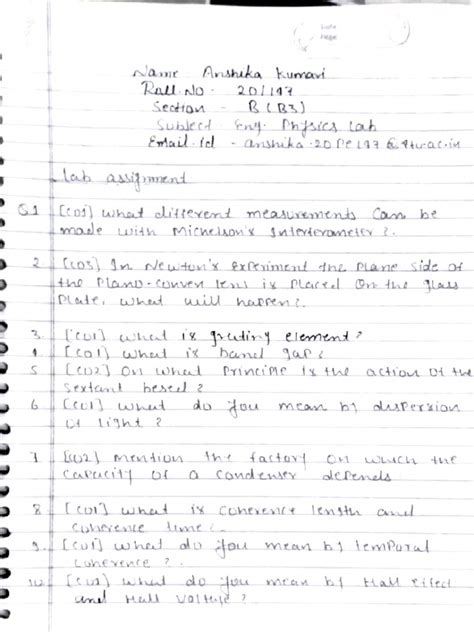 Date
Page
Name Anshika Kumari
Roll.No - 20/147
Section - B (B3)
Subject Eng. Physics Lab
Email.id - anshika.20
Lab assignment
Q.1 [CO1] What different measurements Can be
made with Michelson's Interferometer ?.
2 [CO3] In Newton's Experiment the Plane side of
the Plano-convex lens is Placed On the glass
Plate, what will happen?.
3. [CO1] What is grating element?
4 [CO1] What is band gap?
5 [CO2] On what Principle is the action of the
sextant based ?
6 [CO1] What do you mean by dispersion
of light ?
7 [CO2] mention the factory on which the
capacity of a condenser depends
8 [CO1] what is coherence length and
coherence time?.
9. [CO1] what do you mean by temporal
coherence ?.
10. what do you mean by Hall effect
and Hall voltage ?